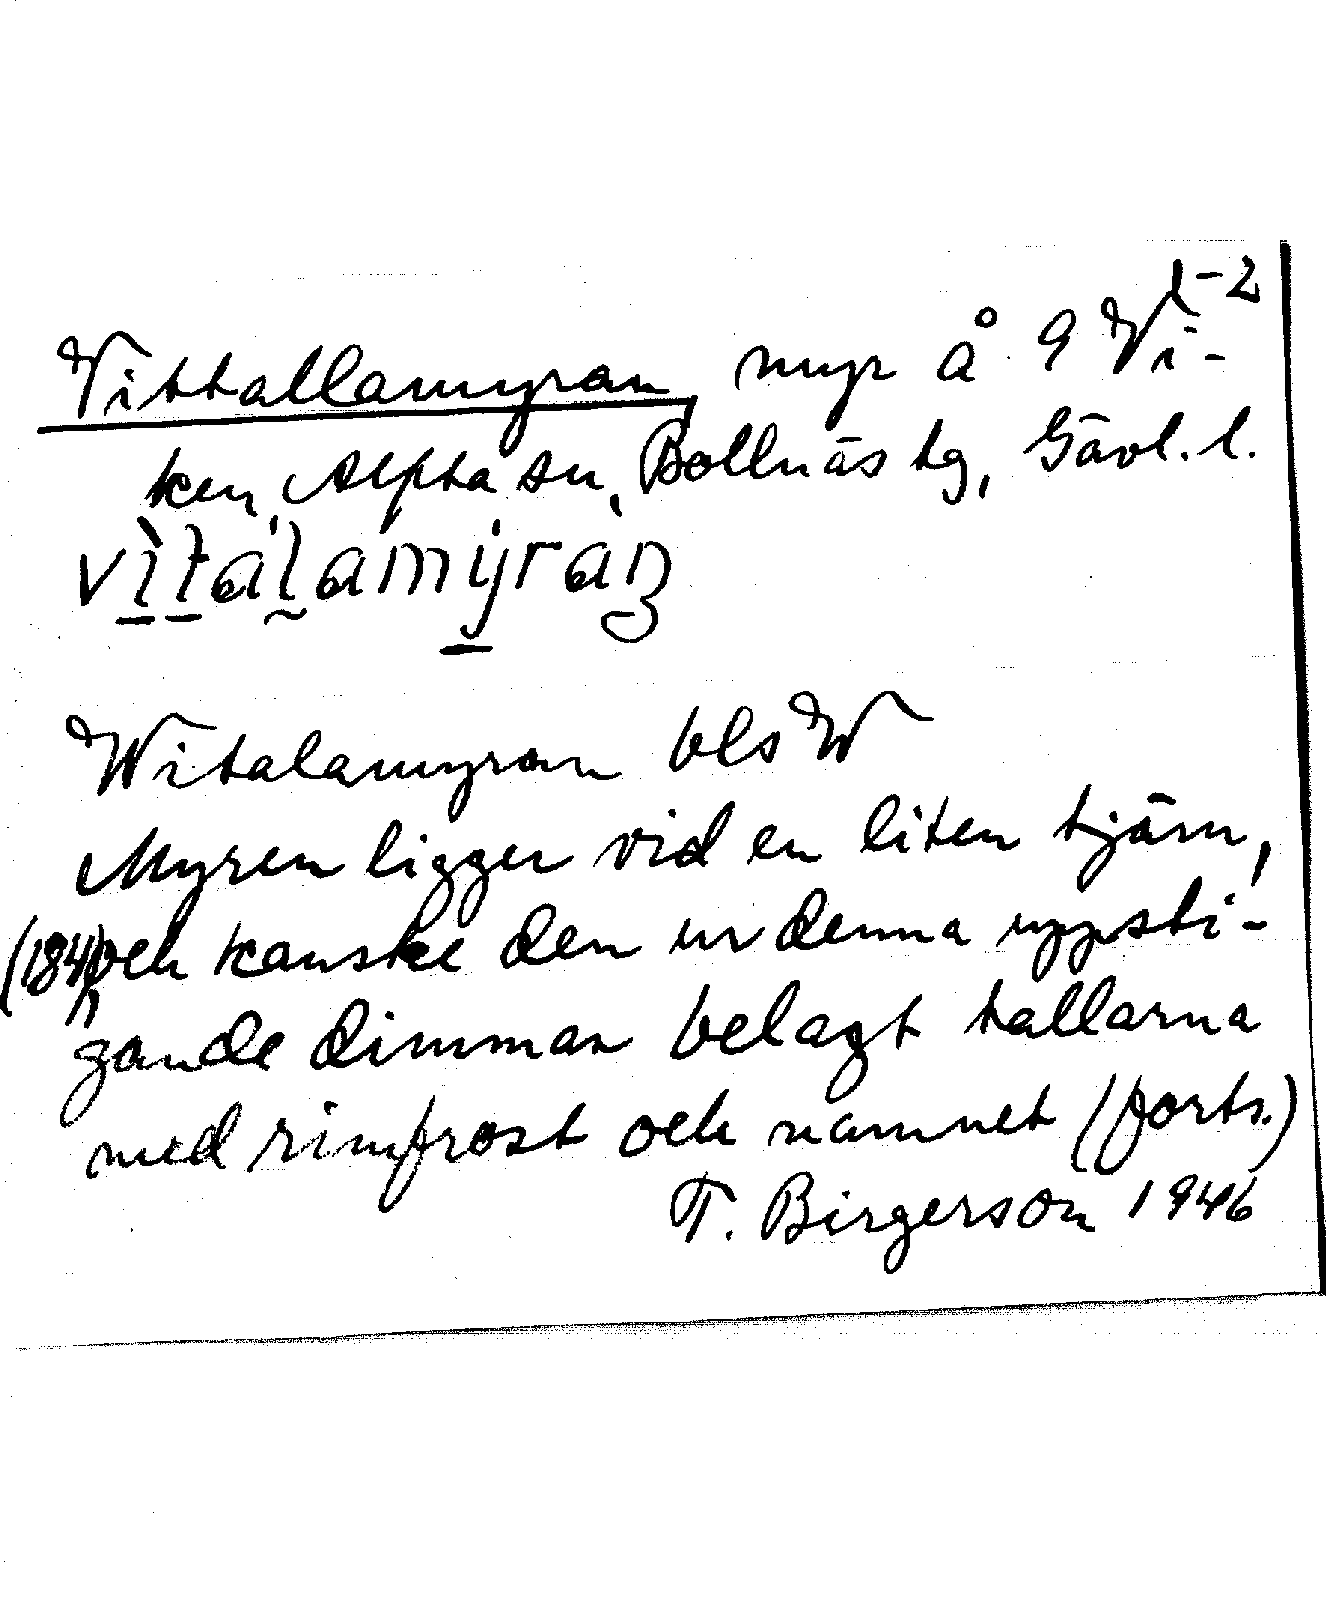 Vittallamyran, myr å 9 Vi- 1-2
ken, Alfta sn, Bollnäs tg, Gävl. l.
vìtálamy̍ràn
Witalamyran bls W
Myren ligger vid en liten tjärn,
(184) och kanske den ur denna uppsti-
gande dimman belagt tallarna
med rimfrost och namnet (forts.)
T. Birgerson 1946